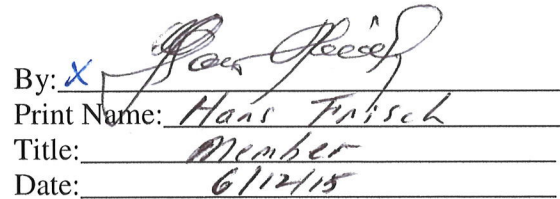 By: X
Print Name: Hans Frisch
Title: Member
Date: 6/12/15